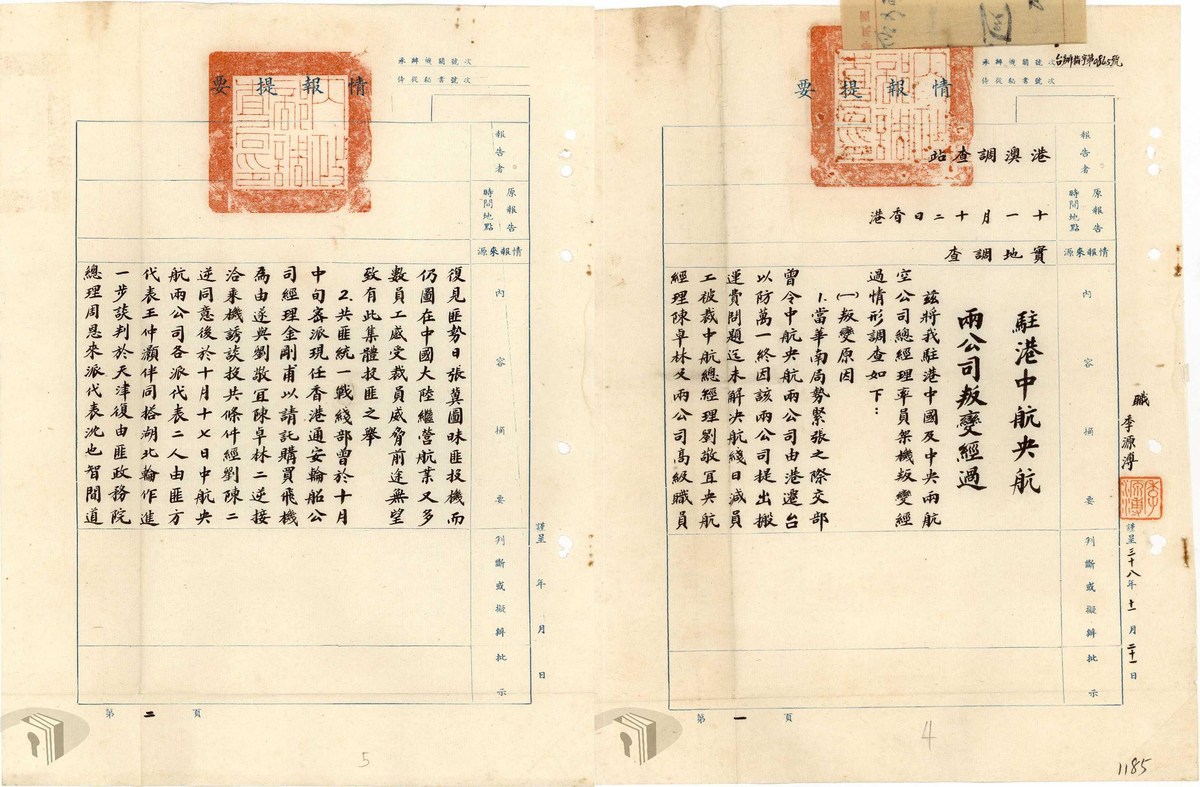 情報提要
承辦機關號次
侍從秘書號次
報告者
港澳調查站
原報告時間地點
十一月十二日香港
情報來源
實地調查
內容摘要
駐港中航央航
兩公司叛變經過
茲將我駐港中國及中央兩航
空公司總經理率員架機叛變經
過情形調查如下：
㈠叛變原因
1.當華南局勢緊張之際交部
曾令中航央航兩公司由港遷台
以防萬一終因該兩公司提出搬
運費問題迄未解決航綫日減員
工被裁中航總經理劉敬宜央航
經理陳卓林又兩公司高級職員
判斷或擬辦
批示
職 李源溥
李源溥
謹呈三十八年十一月二十一日
第一頁
4
1185
情報提要
承辦機關號次
侍從秘書號次
報告者
原報告時間地點
情報來源
內容摘要
復見匪勢日張冀圖昧匪投機而
仍圖在中國大陸繼營航業又多
數員工感受裁員威脅前途無望
致有此集體投匪之舉
2.共匪統一戰綫部曾於十月
中旬密派現任香港通安輪船公
司經理金剛甫以請託購買飛機
為由遂與劉敬宜陳卓林二逆接
洽乘機誘談投共條件經劉陳二
逆同意後於十月十七日中航央
航兩公司各派代表二人由匪方
代表王仲灝伴同搭湖北輪作進
一步談判於天津復由匪政務院
總理周恩來派代表沈也智間道
判斷或擬辦
批示
謹呈 年 月 日
第二頁
5